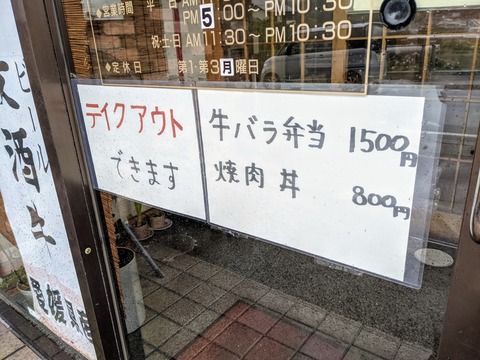 営業時間 平日 AM11:00〜PM
PM5:00〜PM10:30
祝・土・日 AM11:30〜PM10:30
定休日 第1・第3月曜日
テイクアウト
できます
牛バラ弁当 1500円
焼肉丼 800円
ビール
酒
牛
愛媛